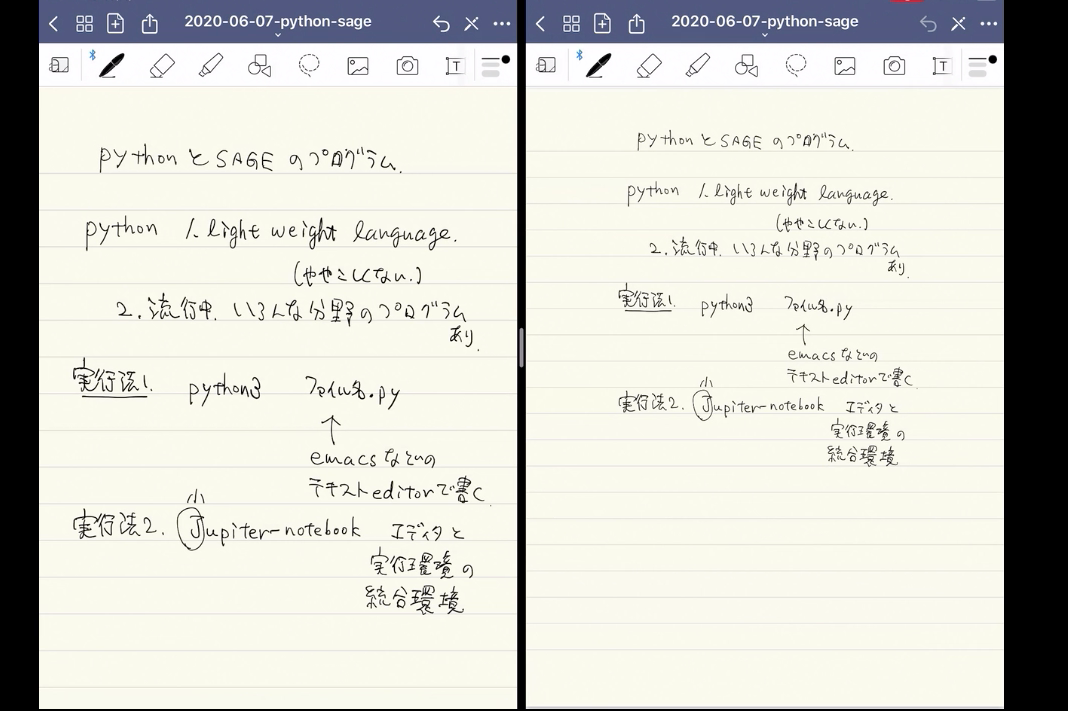 2020-06-07-python-sage
T
pythonとSAGEのプログラム.
python 1. light weight language.
(ややこしくない.)
2. 流行中. いろんな分野のプログラム
あり.
実行法1. python3 ファイル名.py
↑
emacsなどの
テキストeditorで書く.
小
実行法2. Jupiter-notebook エディタと
実行環境の
統合環境
2020-06-07-python-sage
T
pythonとSAGEのプログラム.
python 1. light weight language.
(ややこしくない.)
2. 流行中. いろんな分野のプログラム
あり.
実行法1. python3 ファイル名.py
↑
emacsなどの
テキストeditorで書く.
小
実行法2. Jupiter-notebook エディタと
実行環境の
統合環境